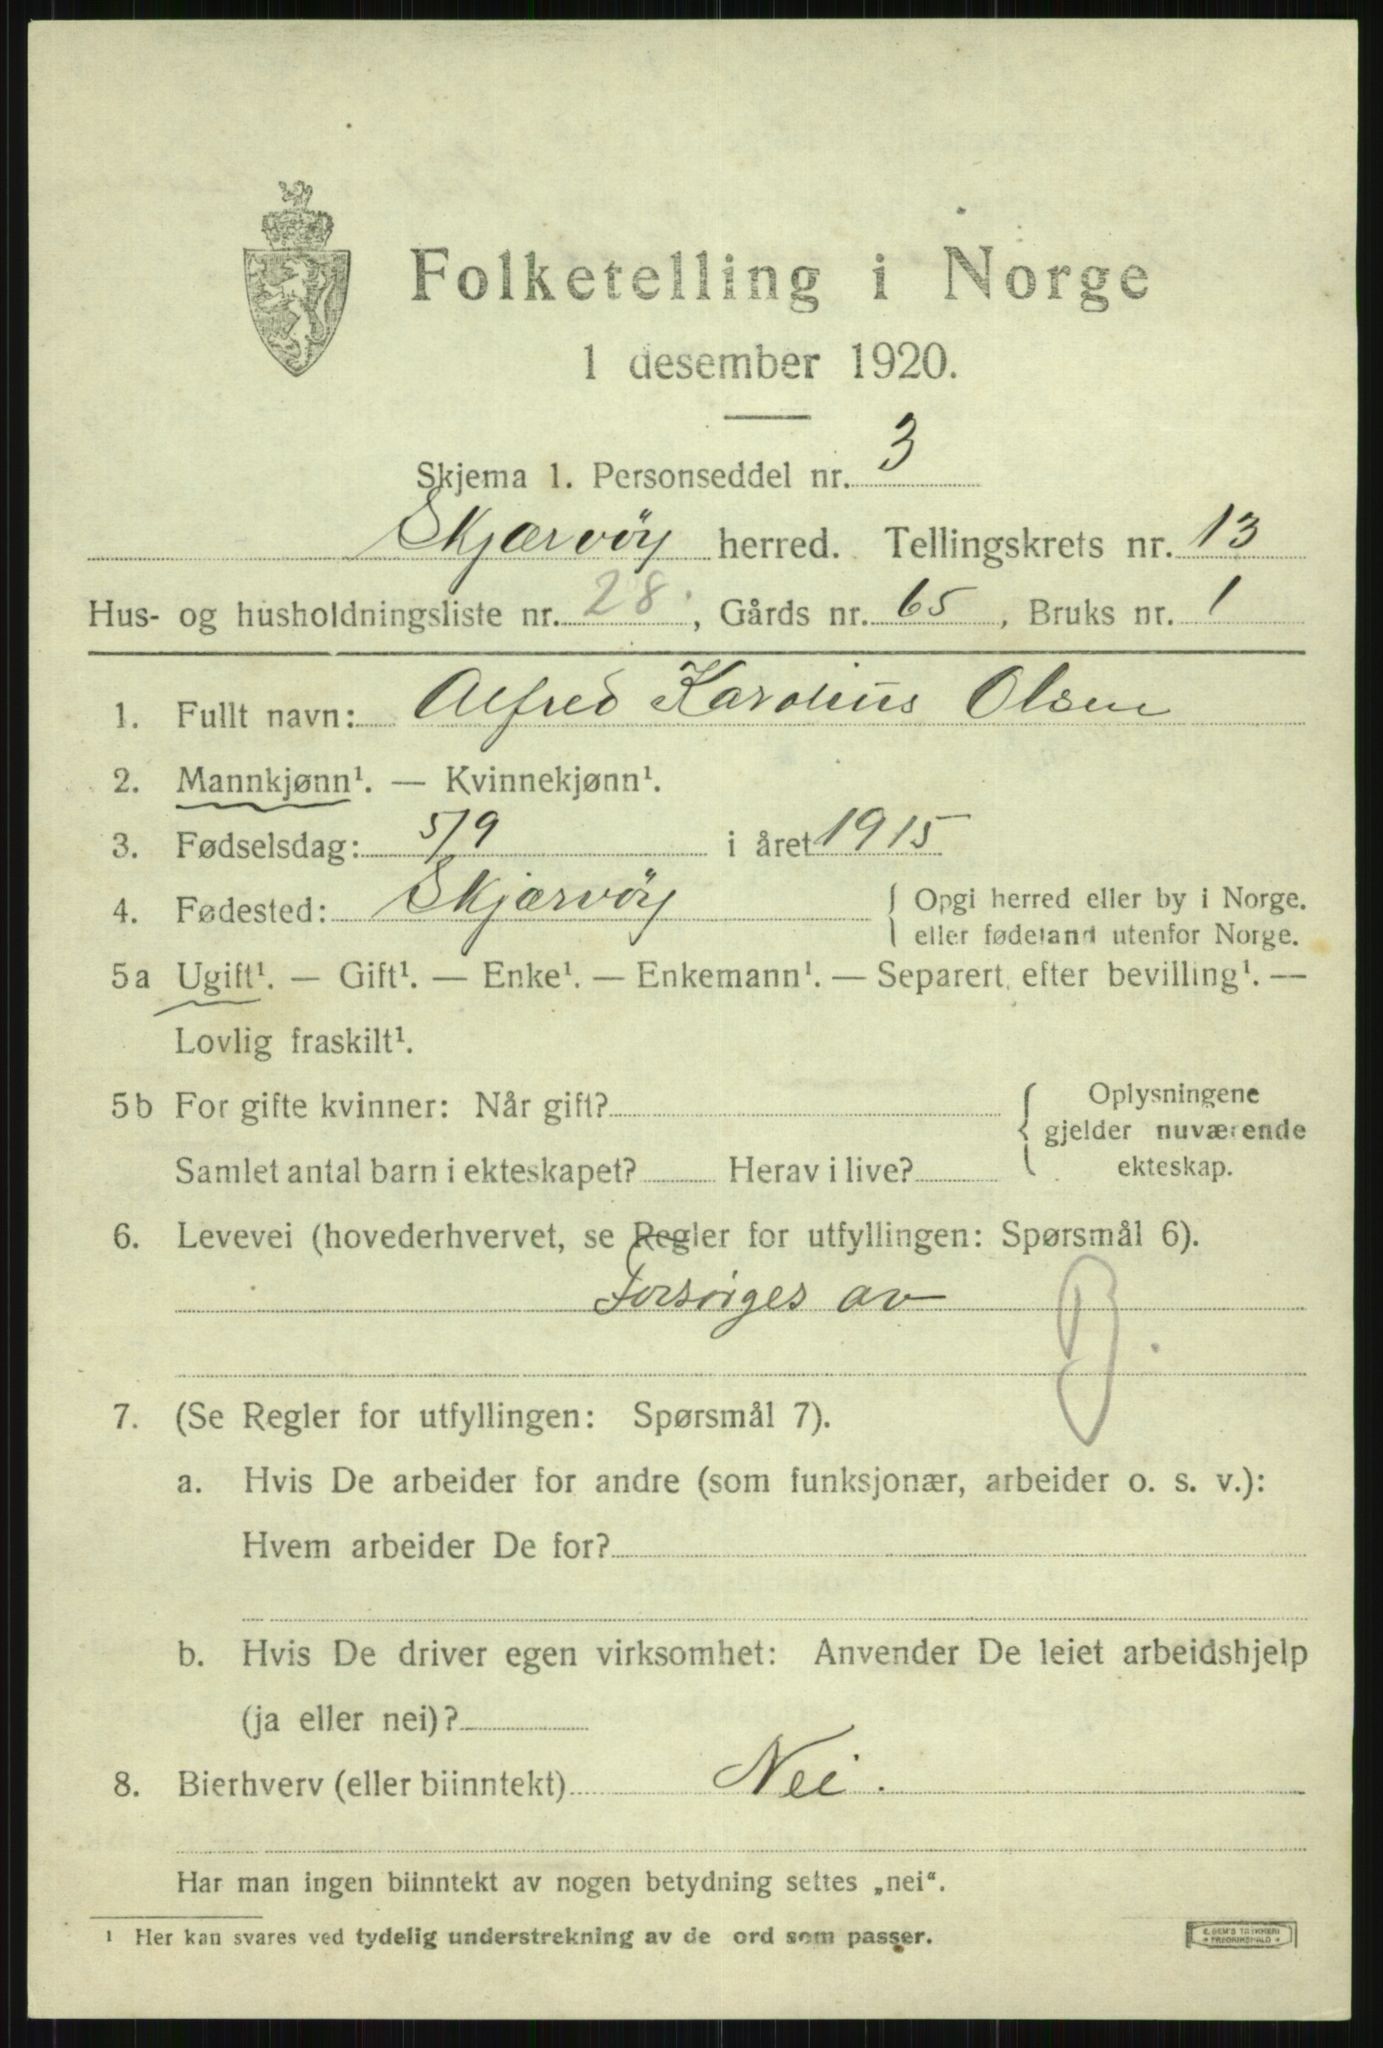 Folketelling i Norge
1 desember 1920.
Skjema 1. Personseddel nr. 3
Skjærvöy herred. Tellingskrets nr. 13
Hus- og husholdningsliste nr. 28, Gårds nr. 65, Bruks nr. 1
1. Fullt navn: Alfred Karolius Olsen
2. Mannkjønn¹. — Kvinnekjønn¹.
3. Fødselsdag: 5/9 i året 1915
4. Fødested: Skjærvöy { Opgi herred eller by i Norge.
eller fødeland utenfor Norge.
5a Ugift¹. — Gift¹. — Enke¹. — Enkemann¹. — Separert efter bevilling¹. —
Lovlig fraskilt¹.
5b For gifte kvinner: Når gift? { Oplysningene
gjelder nuværende
Samlet antal barn i ekteskapet? Herav i live? ekteskap.
6. Levevei (hovederhvervet, se Regler for utfyllingen: Spørsmål 6).
Forsörges av B.
7. (Se Regler for utfyllingen: Spørsmål 7).
a. Hvis De arbeider for andre (som funksjonær, arbeider o. s. v.):
Hvem arbeider De for?
b. Hvis De driver egen virksomhet: Anvender De leiet arbeidshjelp
(ja eller nei)?
8. Bierhverv (eller biinntekt) Nei.
Har man ingen biinntekt av nogen betydning settes „nei“.
¹ Her kan svares ved tydelig understrekning av de ord som passer.